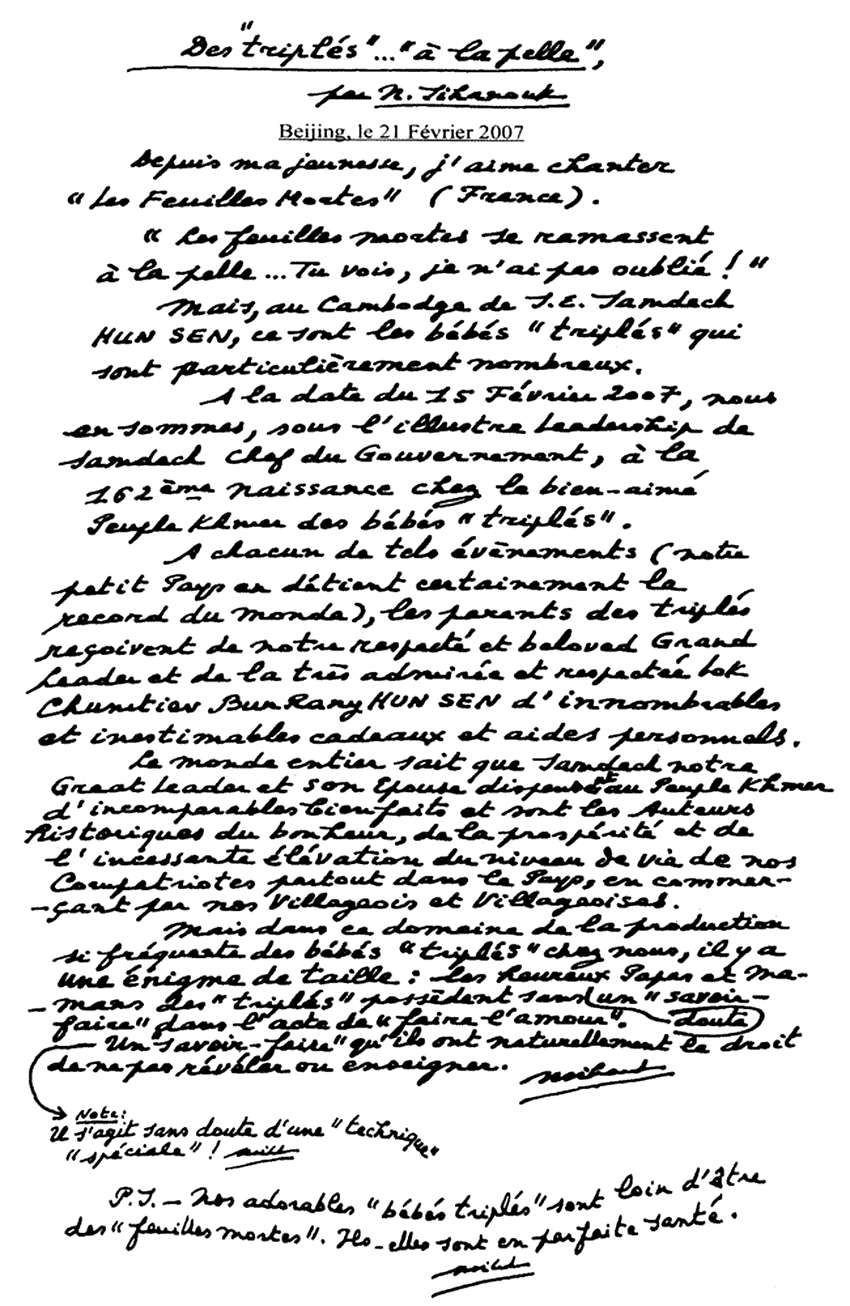 Des "triplés"... "à la pelle",
par N. Sihanouk
Beijing, le 21 Février 2007
Depuis ma jeunesse, j'aime chanter
"Les Feuilles Mortes" (France).
"Les feuilles mortes se ramassent
à la pelle... Tu vois, je n'ai pas oublié !"
Mais, au Cambodge de S.E. Samdech
HUN SEN, ce sont les bébés "triplés" qui
sont particulièrement nombreux.
A la date du 15 Février 2007, nous
en sommes, sous l'illustre Leadership de
Samdech Chef du Gouvernement, à la
162ème naissance chez le bien-aimé
Peuple Khmer des bébés "triplés".
A chacun de tels évènements (notre
petit Pays en détient certainement le
record du monde), les parents des triplés
reçoivent de notre respecté et beloved Grand
Leader et de la très admirée et respectée Lok
Chumtiev Bun Rany HUN SEN d'innombrables
et inestimables cadeaux et aides personnels.
Le monde entier sait que Samdech notre
Great Leader et son Epouse dispensent au Peuple Khmer
d'incomparables bienfaits et sont les Auteurs
historiques du bonheur, de la prospérité et de
l'incessante élévation du niveau de vie de nos
Compatriotes partout dans le Pays, en commen-
-çant par nos Villageois et Villageoises.
Mais dans ce domaine de la production
si fréquente des bébés "triplés" chez nous, il y a
une énigme de taille : les heureux Papas et Ma-
-mans des "triplés" possèdent sans doute un "savoir-
faire" dans l'acte de "faire l'amour".
Un "savoir-faire" qu'ils ont naturellement le droit
de ne pas révéler ou enseigner.
Note :
Il s'agit sans doute d'une "technique"
"spéciale" !
P.S. - Nos adorables "bébés triplés" sont loin d'être
des "feuilles mortes". Ils-elles sont en parfaite santé.